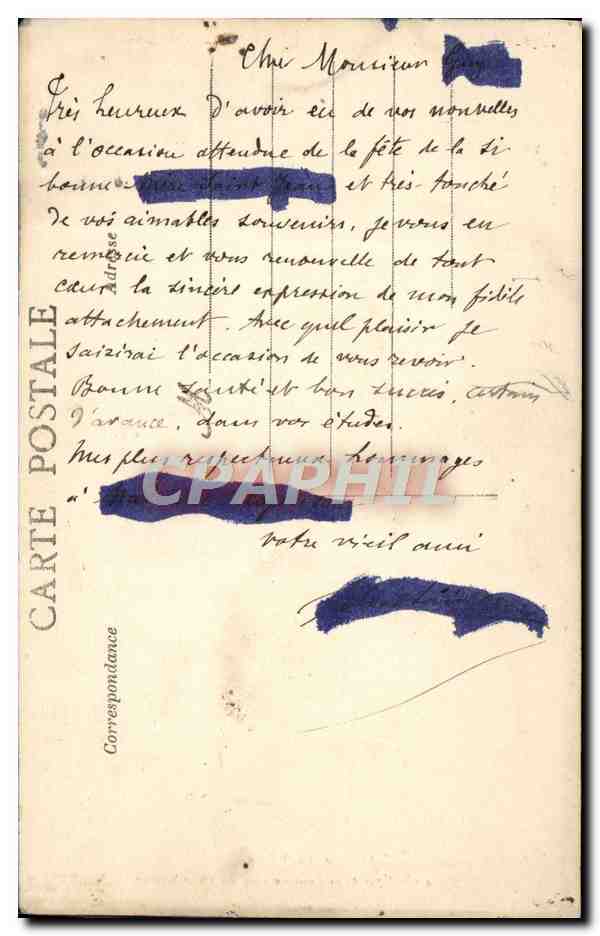 Cher Monsieur Guy
Très heureux d'avoir eu de vos nouvelles
à l'occasion attendue de la fête de la si
bonne mère Saint Jean et très touché
de vos aimables souvenirs, je vous en
remercie et vous renouvelle de tout
cœur la sincère expression de mon fidèle
attachement. Avec quel plaisir je
saisirai l'occasion de vous revoir.
Bonne santé et bon succès, certain
d'avance, dans vos études.
Mes plus respectueux hommages
à
votre vieil ami
CARTE POSTALE
Correspondance
Adresse
CPAPHIL